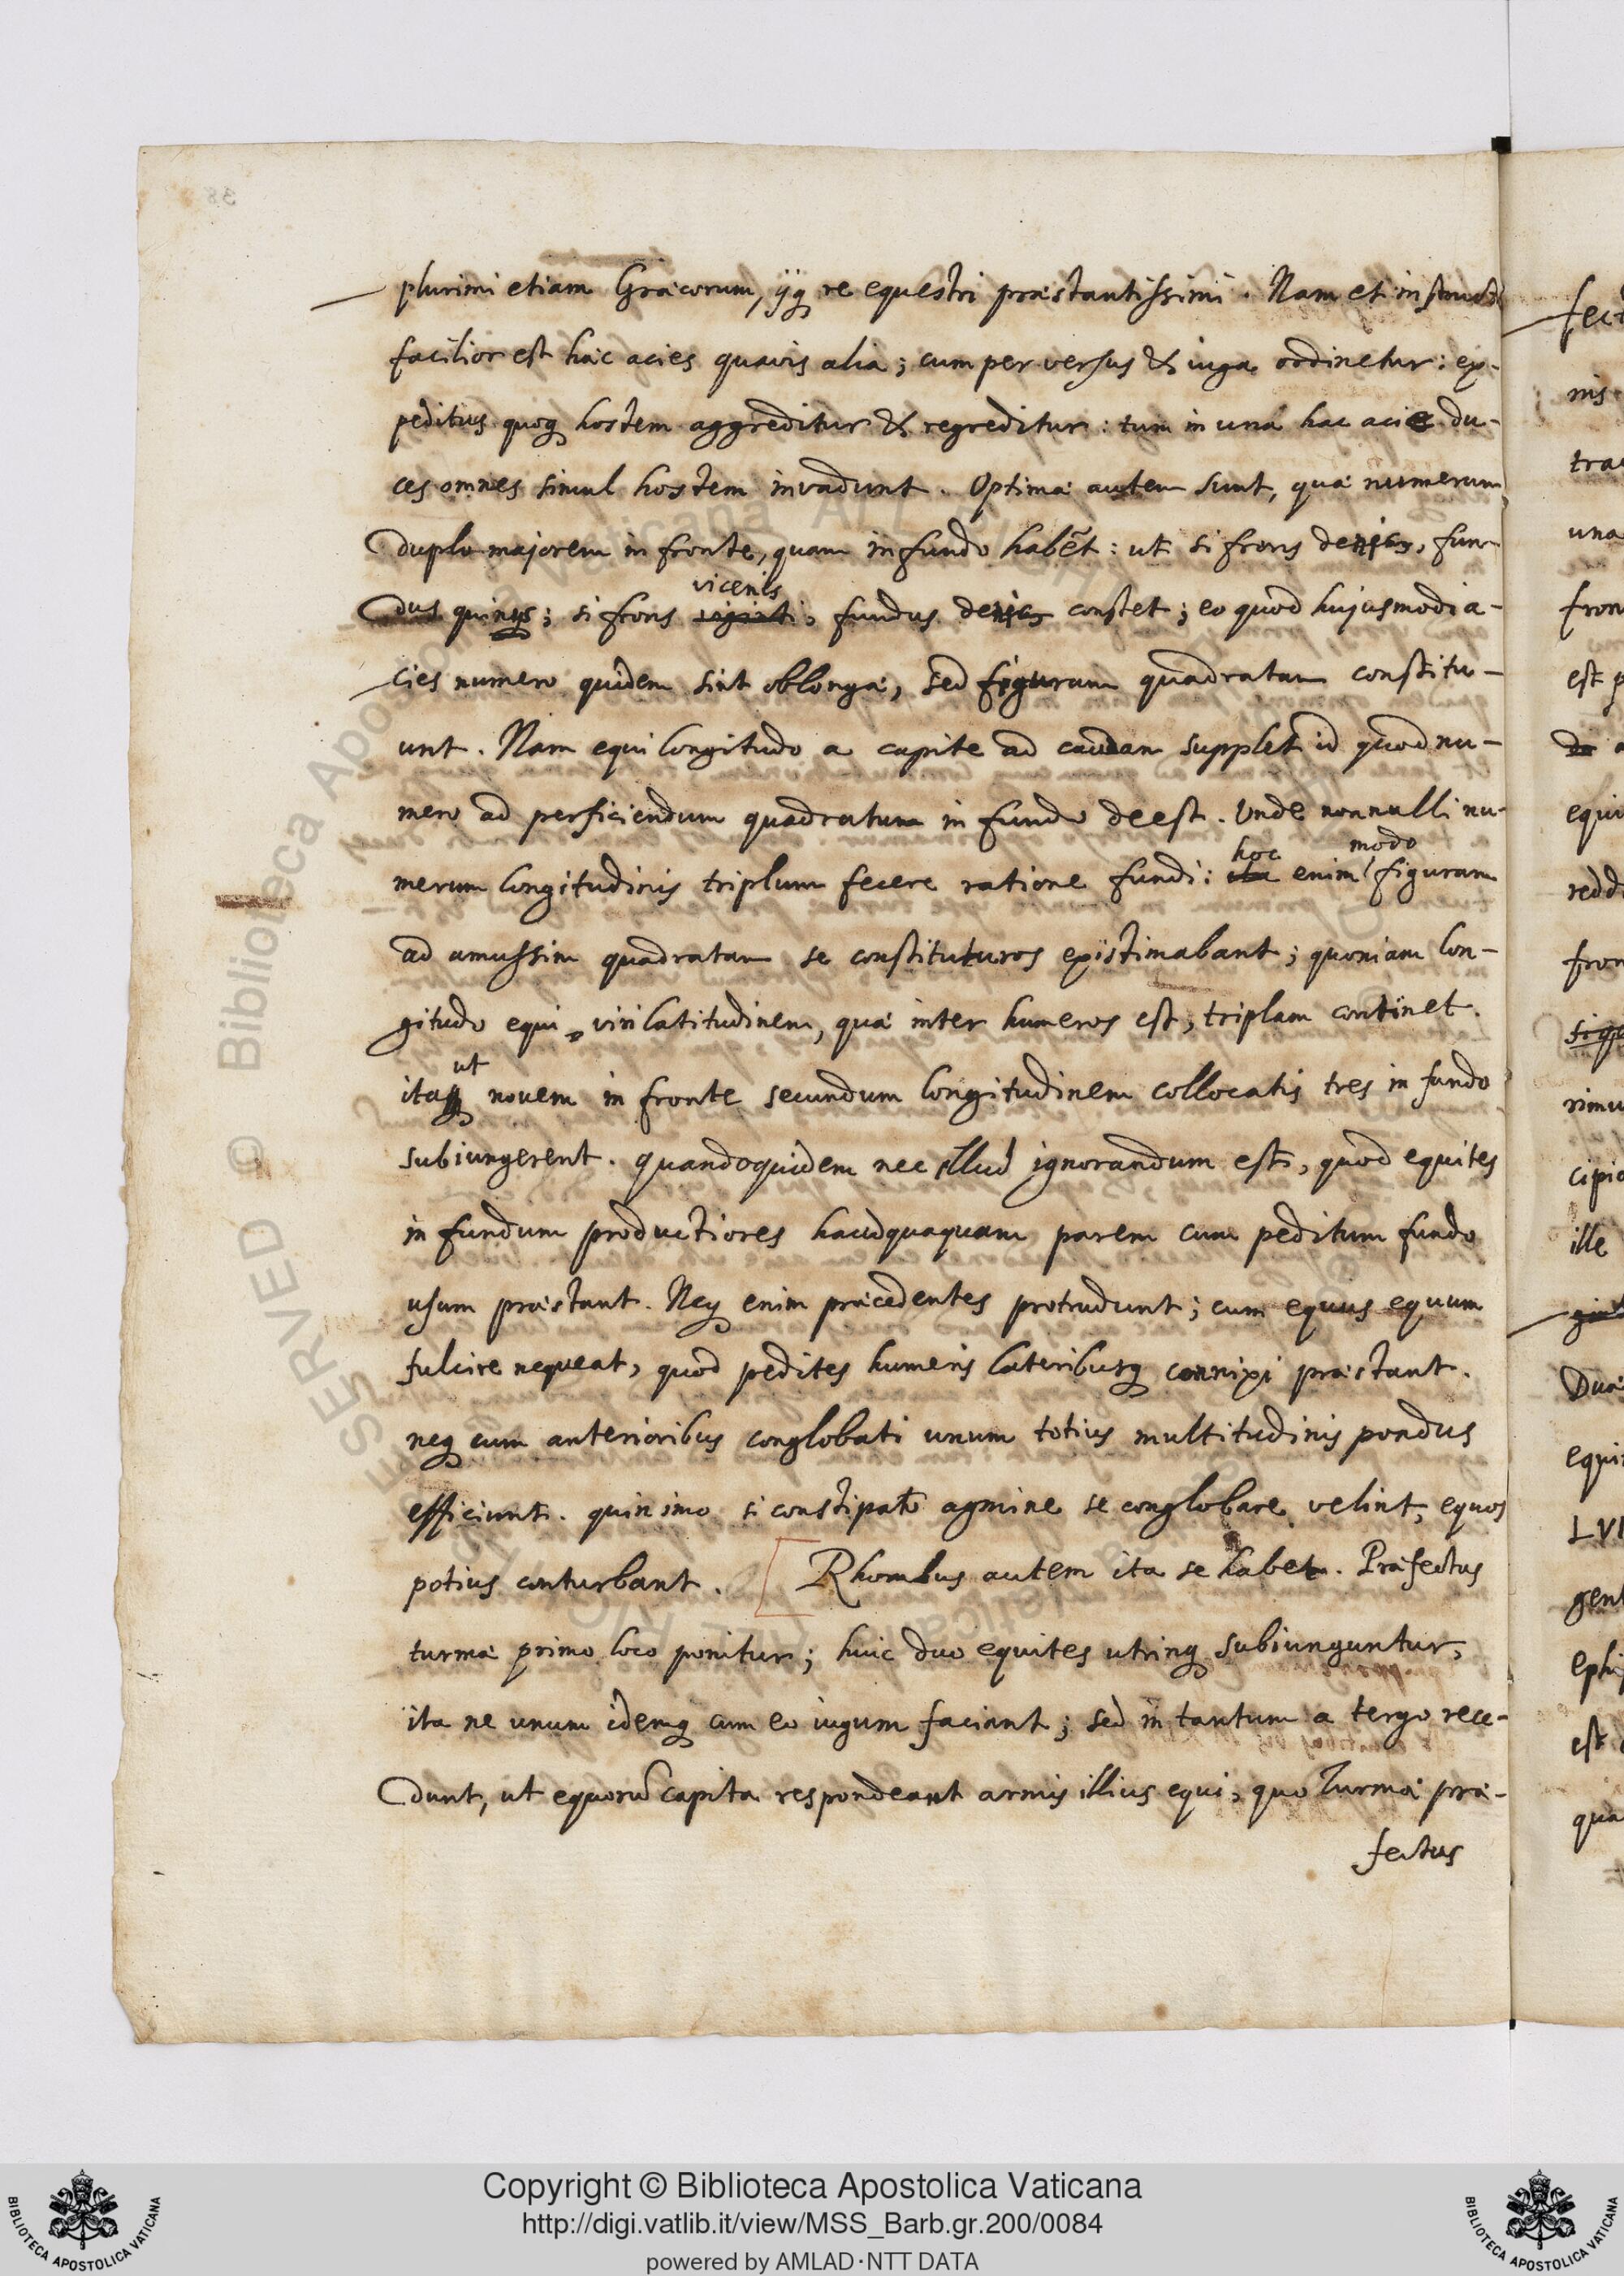 plurimi etiam Græcorum, ijq; re equestri præstantissimi. Nam et instructu
facilior est hæc acies quavis alia; cum per versus & iuga ordinetur: ex-
peditius quoq; hostem aggreditur & regreditur: tum in una hac acie du-
ces omnes simul hostem invadunt. Optimæ autem sunt, quæ numerum
duplo majorem in fronte, quam in fundo habēt: ut si frons denis, fun-
vicenis
dus quinis; si frons viginti, fundus denis constet; eo quod hujusmodi a-
cies numero quidem sint oblongæ, sed figuram quadratam constitu-
unt. Nam equi longitudo a capite ad caudam supplet id quod nu-
mero ad perficiendum quadratum in fundo deest. Unde nonnulli nu-
hoc modo
merum longitudinis triplum fecere ratione fundi: ita enim figuram
ad amussim quadratam se constituturos existimabant; quoniam lon-
gitudo equi, viri latitudinem, quæ inter humeros est, triplam continet.
ut
itaq; novem in fronte secundum longitudinem collocatis tres in fundo
subiungerent. quandoquidem nec illud ignorandum est, quod equites
in fundum productiores haudquaquam parem cum peditum fundo
usum præstant. Neq; enim præcedentes protrudunt; cum equus equum
fulcire nequeat, quod pedites humeris lateribusq; connixi præstant.
neq; cum anterioribus conglobati unum totius multitudinis pondus
efficiunt. quinimo si constipato agmine se conglobare velint, equos
potius conturbant. [Rhombus autem ita se habet. Præfectus
turmæ primo loco ponitur; huic duo equites utrinq; subiunguntur,
ita ne unum idemq; cum eo iugum faciant; sed in tantum a tergo rece-
dunt, ut equorū capita respondeant armis illius equi, quo Turmæ præ-
fectus
Copyright © Biblioteca Apostolica Vaticana
http://digi.vatlib.it/view/MSS_Barb.gr.200/0084
powered by AMLAD·NTT DATA
BIBLIOTECA APOSTOLICA VATICANA
BIBLIOTECA APOSTOLICA VATICANA